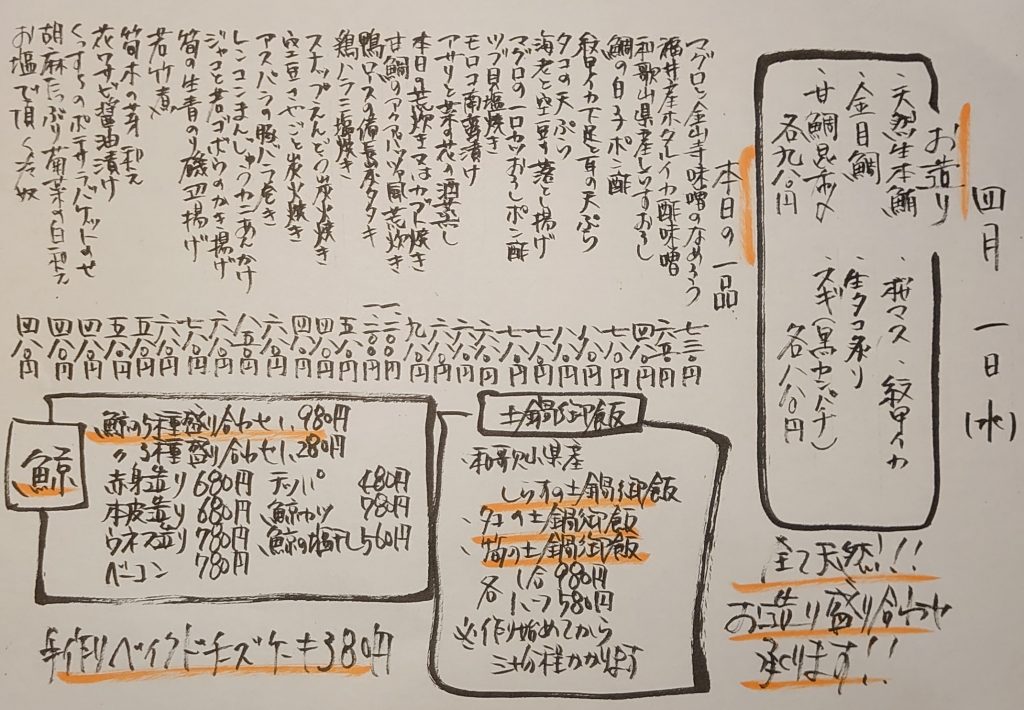 四月一日(水)
お造り
・天然生本鮪
・金目鯛
・甘鯛昆布〆
各九八〇円
・桜マス・紋甲イカ
・生タコ炙り
・スギ(黒カンパチ)
各八八〇円
全て天然!!
お造り盛り合わせ
承ります!!
本日の一品
マグロと金山寺味噌のなめろう 七三〇円
福井産ホタルイカ酢味噌 六五〇円
和歌山県産しらすおろし 四八〇円
鯛の白子ポン酢 七八〇円
紋甲イカ下足と耳の天ぷら 六八〇円
タコの天ぷら 八八〇円
海老と空豆の落とし揚げ 七八〇円
マグロの一口カツおろしポン酢 七八〇円
ツブ貝の塩焼き 六八〇円
モロコ南蛮漬け 六八〇円
アサリと菜の花の酒蒸し 六八〇円
本日の荒炊き又はカブト焼き 九八〇円
甘鯛のアクアパッツァ風荒炊き 一二〇〇円
鴨ロースの備長炭タタキ 一二八〇円
鶏ハラミ塩焼き 五八〇円
スナップえんどう炭火焼き 四八〇円
空豆さやごと炭火焼き 四八〇円
アスパラの豚バラまき 六八〇円
レンコンまんじゅうカニあんかけ 八五〇円
ジャコと若ゴボウのかき揚げ 六八〇円
筍の生青のり磯辺揚げ 七八〇円
若竹煮 六八〇円
筍木の芽和え 五八〇円
花ワサビ醤油漬け 五八〇円
くんすらのポテサラバゲットのせ 四八〇円
胡麻たっぷり菊菜の白和え 四八〇円
お塩で頂く冷奴 四八〇円
土鍋御飯
・和歌山県産
しらすの土鍋御飯
・タコの土鍋御飯
・筍の土鍋御飯
各 1合 980円
各 1/2 580円
※作り始めてから
三十分程かかります
鯨
鯨の5種盛り合わせ 1,980円
〃 3種盛り合わせ 1,280円
赤身造り 680円 テッパ 480円
本皮造り 680円 鯨カツ 780円
ウネス造り 780円 鯨の揚げ 560円
ベーコン 780円
手作りベイクドチーズケーキ380円